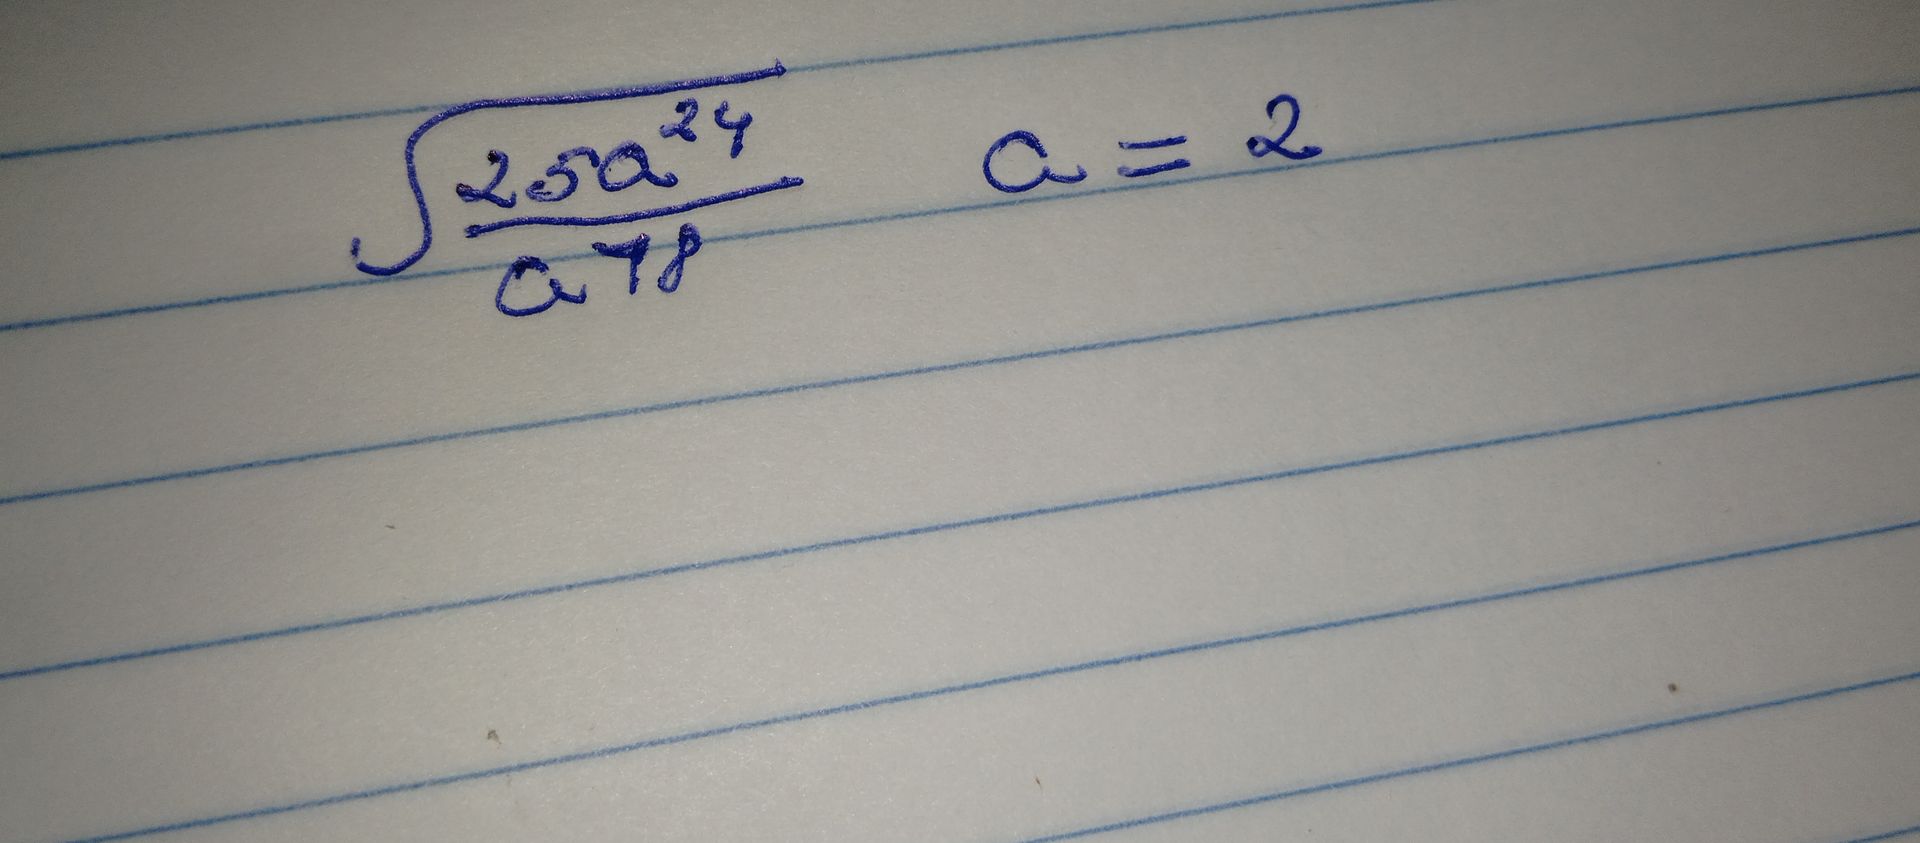 √(25a²⁴/a¹⁸) a = 2